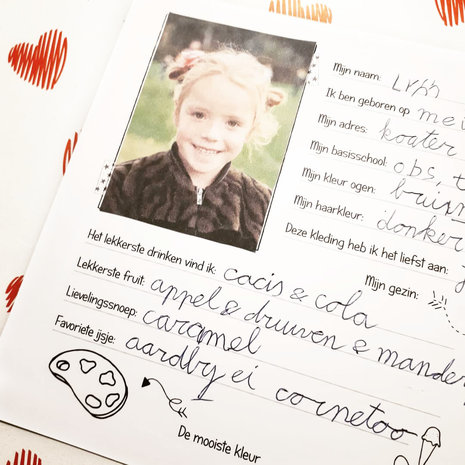 Mijn naam:
Ik ben geboren op me
Mijn adres: koater
Mijn basisschool: obs, t
Mijn kleur ogen: bruin
Mijn haarkleur: donker
Deze kleding heb ik het liefst aan:
Mijn gezin:
Het lekkerste drinken vind ik: cacis & cola
Lekkerste fruit: appel & druiven & mander
Lievelingssnoep: caramel
Favoriete ijsje: aardby ei cornetoo
De mooiste kleur